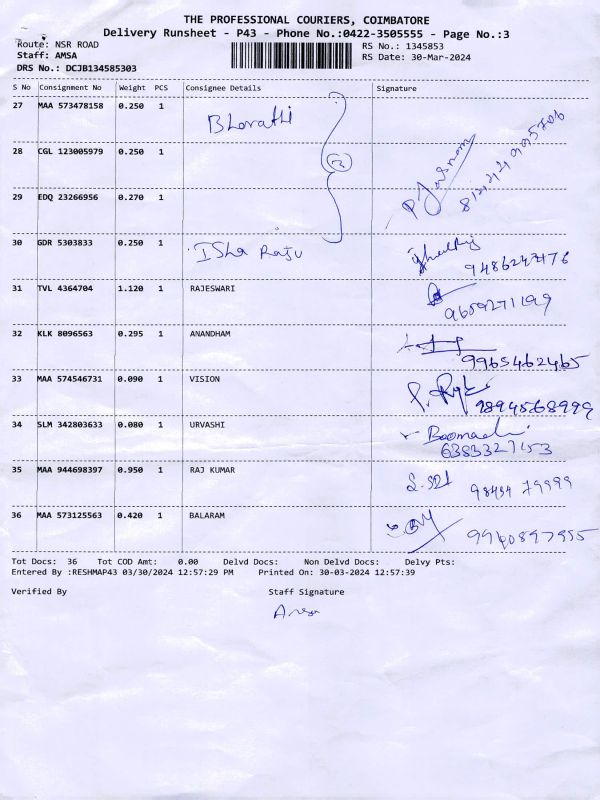 THE PROFESSIONAL COURIERS, COIMBATORE
Delivery Runsheet - P43 - Phone No.:0422-3505555 - Page No.:3
Route: NSR ROAD RS No.: 1345853
Staff: AMSA RS Date: 30-Mar-2024
DRS No.: DCJB134585303
S No Consignment No Weight PCS Consignee Details Signature
27 MAA 573478158 0.250 1 Bharathi
28 CGL 123005979 0.250 1
29 EDQ 23266956 0.270 1
30 GDR 5303833 0.250 1 Isha Raju
9486247176
31 TVL 4364704 1.120 1 RAJESWARI
9659271199
32 KLK 8096563 0.295 1 ANANDHAM
9965462465
33 MAA 574546731 0.090 1 VISION
9894568999
34 SLM 342803633 0.080 1 URVASHI
6383327153
35 MAA 944698397 0.950 1 RAJ KUMAR
98434 79999
36 MAA 573125563 0.420 1 BALARAM
Tot Docs: 36 Tot COD Amt: 0.00 Delvd Docs: Non Delvd Docs: Delvy Pts:
Entered By :RESHMAP43 03/30/2024 12:57:29 PM Printed On: 30-03-2024 12:57:39
Verified By Staff Signature